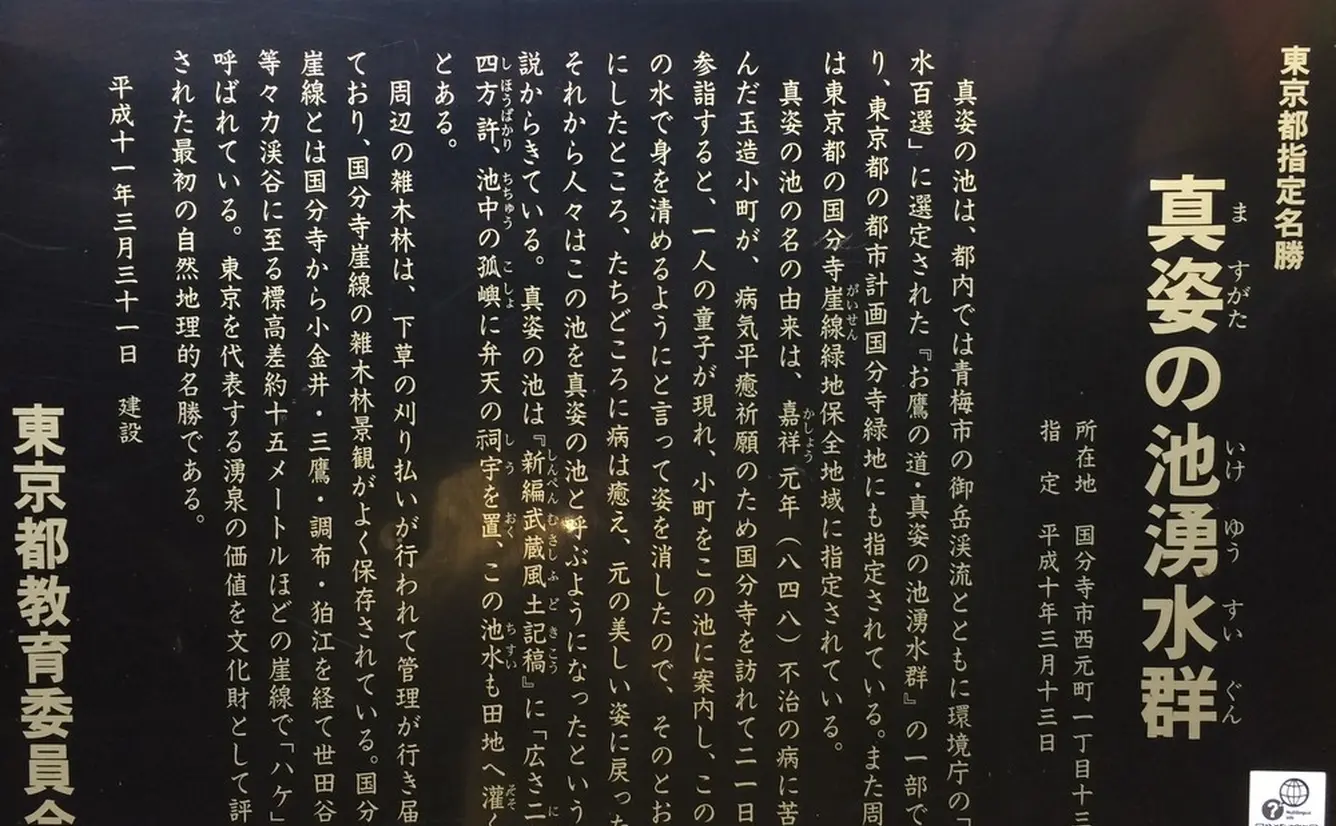 東京都指定名勝
真姿の池湧水群
ま すがた いけ ゆう すい ぐん
所在地 国分寺市西元町一丁目十三
指 定 平成十年三月十三日
真姿の池は、都内では青梅市の御岳渓流とともに環境庁の「
水百選」に選定された『お鷹の道・真姿の池湧水群』の一部で
り、東京都の都市計画国分寺緑地にも指定されている。また周
は東京都の国分寺崖線緑地保全地域に指定されている。
がいせん
真姿の池の名の由来は、嘉祥元年（八四八）不治の病に苦
かしょう
んだ玉造小町が、病気平癒祈願のため国分寺を訪れて二一日
参詣すると、一人の童子が現れ、小町をこの池に案内し、この
の水で身を清めるようにと言って姿を消したので、そのとお
にしたところ、たちどころに病は癒え、元の美しい姿に戻った
それから人々はこの池を真姿の池と呼ぶようになったという
説からきている。真姿の池は『新編武蔵風土記稿』に「広さ二
しんぺん むさし ふ ど き こう に
四方許、池中の孤嶼に弁天の祠宇を置、この池水も田地へ灌く
しほうばかり ちちゅう こしょ しう おく ちすい そそ
とある。
周辺の雑木林は、下草の刈り払いが行われて管理が行き届
ており、国分寺崖線の雑木林景観がよく保存されている。国分
崖線とは国分寺から小金井・三鷹・調布・狛江を経て世田谷
等々力渓谷に至る標高差約十五メートルほどの崖線で「ハケ」
呼ばれている。東京を代表する湧泉の価値を文化財として評
された最初の自然地理的名勝である。
平成十一年三月三十一日 建設
東京都教育委員会